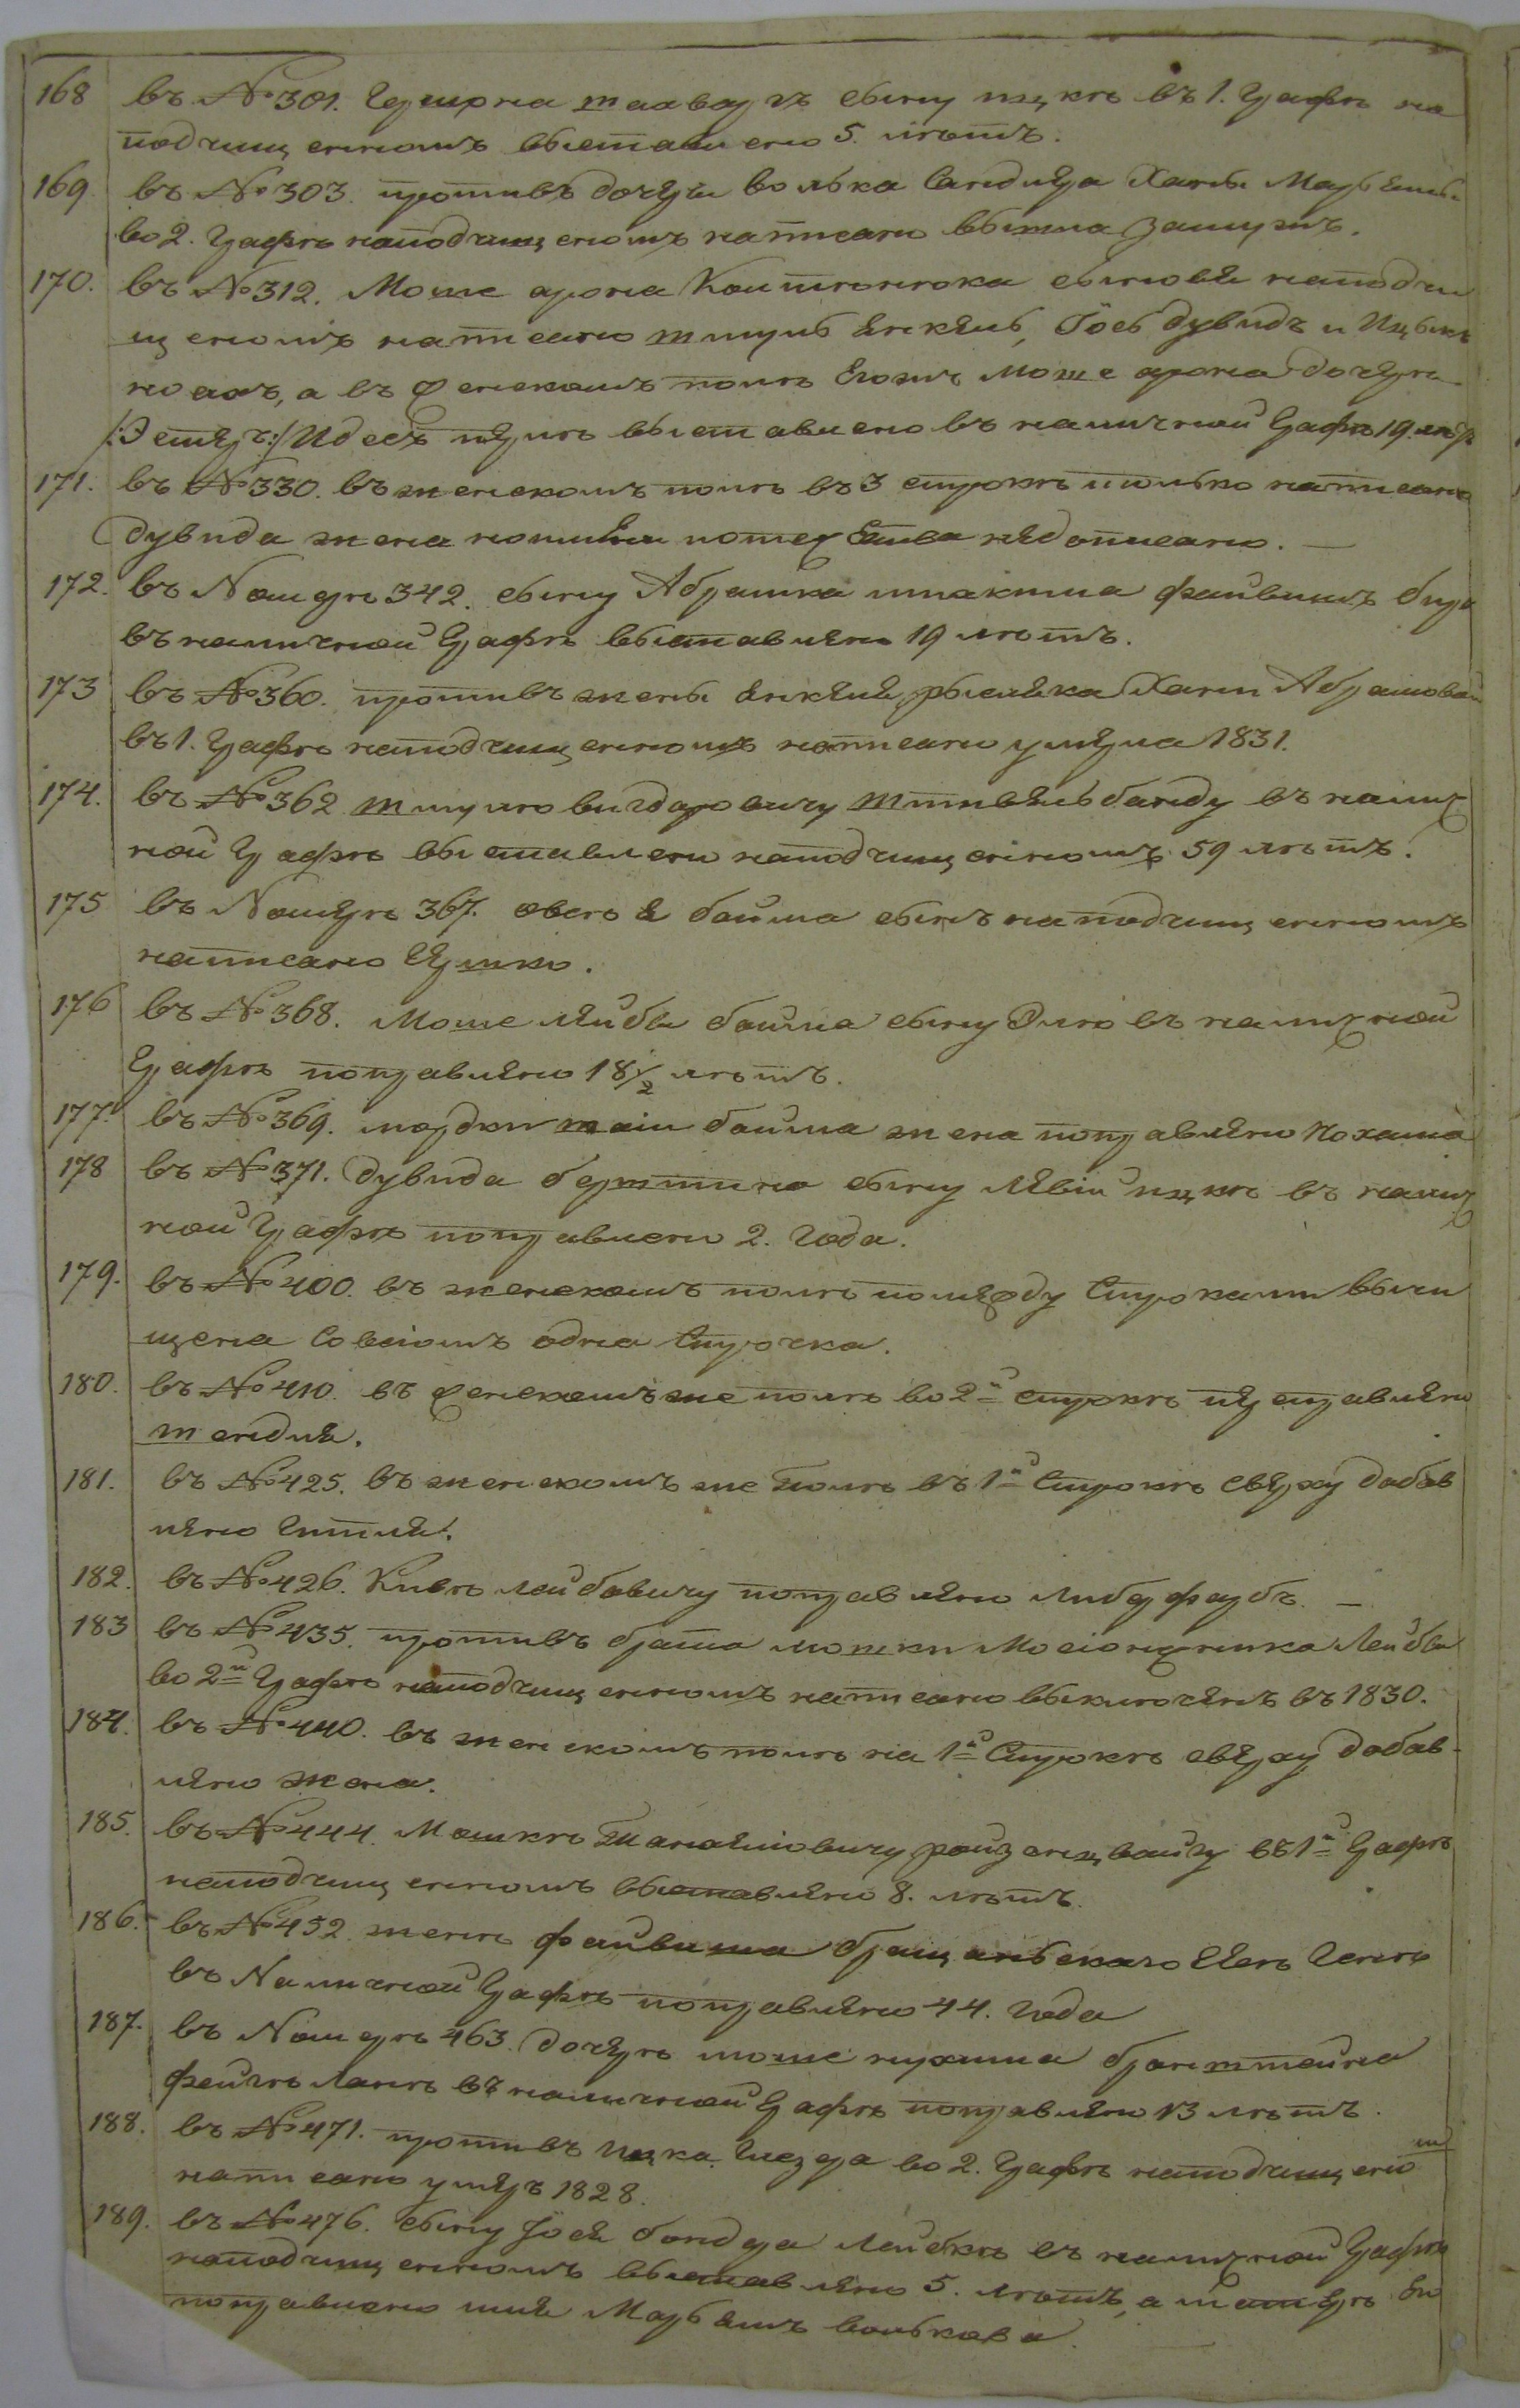 168 въ №301. Гершона тахвау гъ сыну ицкѣ въ 1. графѣ на
подчищенномъ выставлено 5. лѣтъ.
169 въ №303. противъ дочери волька Сандлера Ханы Марьямы
во 2. графѣ наподчищеномъ написано вышла замужъ.
170. въ №312. Моше арона сыновья наподчи
щеномъ написано шмуль янкель, Іось дувидъ и Ицыкъ
ноахъ, а въ женскомъ полѣ Егожъ Моше арона дочери
/:Эстеръ:/ Идесъ перлѣ выставлено въ наличной графѣ 19. лѣтъ
171. въ №330. въ женскомъ полѣ въ 3 строкѣ только написано
Дувида жена недописано. —
172. въ Номерѣ 342. сыну Абрамка файвишъ бира
въ наличной графѣ выставлено 19 лѣтъ.
173 въ №360. противъ жены янкеля рыся́ка Ханы Абрамовой
въ 1. графѣ наподчищенномъ написано умерла 1831.
174. въ №362 шмулю вигдоровичу банду въ налич
ной графѣ выставлено наподчищенномъ 59 лѣтъ.
175 въ Номерѣ 367. овсея байма сынъ наподчищенномъ
написано Гершко.
176 въ №368. Моше лейбы байма сыну Элю въ наличной
графѣ поправлено 18½ лѣтъ.
177. въ №369. мордки байма жена поправлено Нохама
178 въ №371. Дувида сыну левіи ицкѣ въ налич
ной графѣ поправлено 2. года.
179. въ №400. въ женскомъ полѣ помежду строками вычи
щена Совсіомъ одна строчка.
180. въ №410. въ женскомъ же полѣ во 2й строкѣ переправлено
шендля.
181. въ №425. въ женскомъ же полѣ въ 1й строкѣ сверху добав
лено Гитля.
182. въ №426. Кивѣ лейбовичу поправлено Либерфарбъ. —
183 въ №435. противъ брата мошки Лейбы
во 2й графѣ наподчищенномъ написано выключенъ въ 1830.
184. въ №440. въ женскомъ полѣ на 1й строкѣ сверху добав-
лено жена.
185. въ №444. Мошкѣ розенцвайгу въ 1й графѣ
наподчищенномъ выставлено 8. лѣтъ.
186. въ №452. женѣ файвиша Генѣ
въ Наличной графѣ поправлено 44. года
187. въ Номерѣ 463. Дочерѣ моше нухима бронштейна
фейгѣ ланѣ въ наличной графѣ поправлено 13 лѣтъ.
188. въ №471. противъ Ицка Глезера во 2. графѣ наподчищеном
написано умеръ 1828.
189. въ №476. сыну Іося бондера Лейбкѣ въ наличной графѣ
наподчищенномъ выставлено 5. лѣтъ, а
поправлено имя Марьямъ волькова.